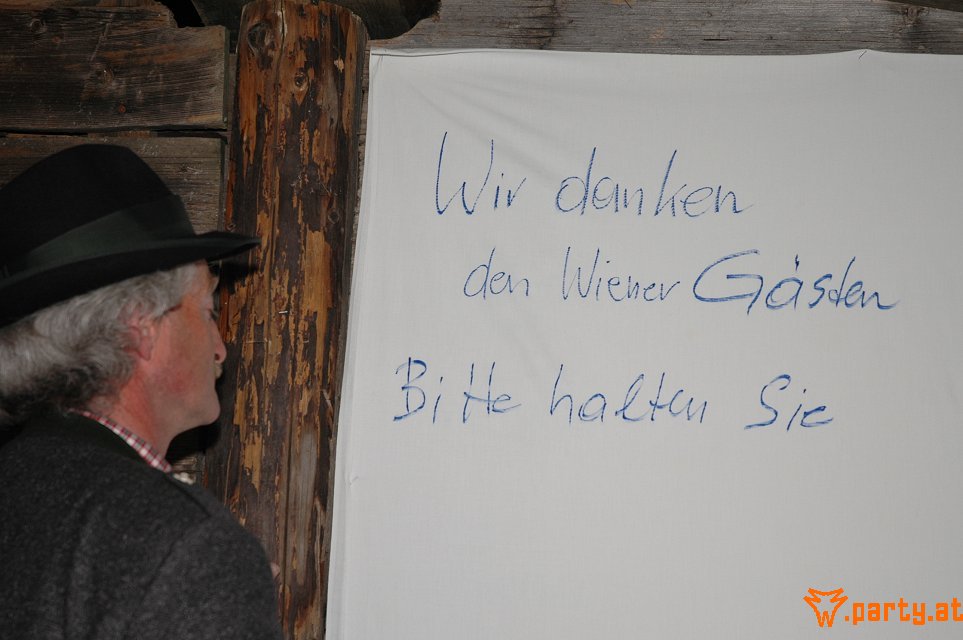 Wir danken
den Wiener Gästen
Bitte halten Sie
.party.at